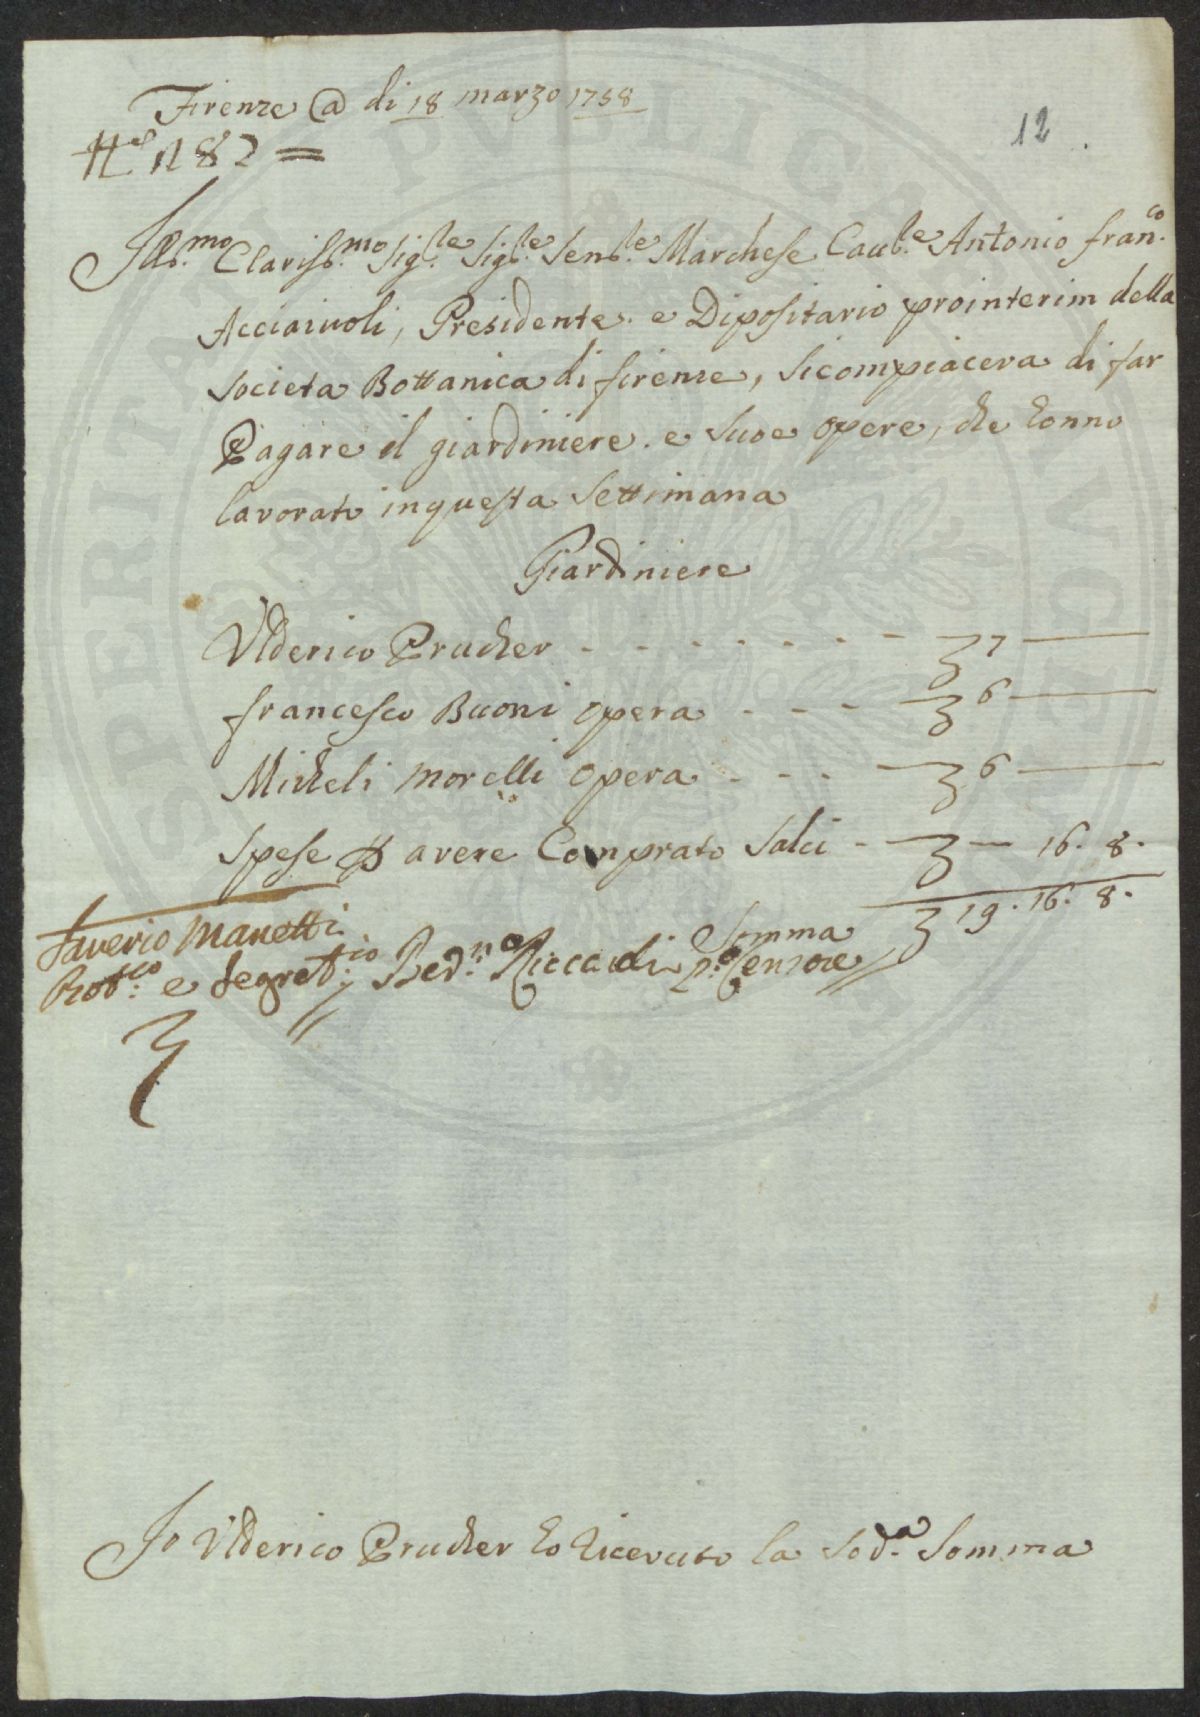 Firenze @ di 18 marzo 1758
12
N.º 182 =
Ill.mo Clariss.mo Sig.re Sig.re Sen.re Marchese Cav.re Antonio Fran.co
Acciaiuoli, Presidente e Dipositario prointerim della
Societa Bottanica di firenze, Si compiacera di far
Pagare il giardiniere e Suoe opere, che honno
lavorato in questa Settimana
Giardiniere
Ulderico Prucher - - - - - - - 7 —
francesco Buoni opera - - - 6 —
Micheli Morelli opera - - - 6 —
Spese p avere Comprato Salci - — 16. 8.
Somma 19. 16. 8.
Saverio Manetti
Bot.co e Segret.io Ber.no Riccardi p.o Censore
Io Ulderico Prucher ho Riceuuto la Sod.a Somma
SPERITANI PUBLICE